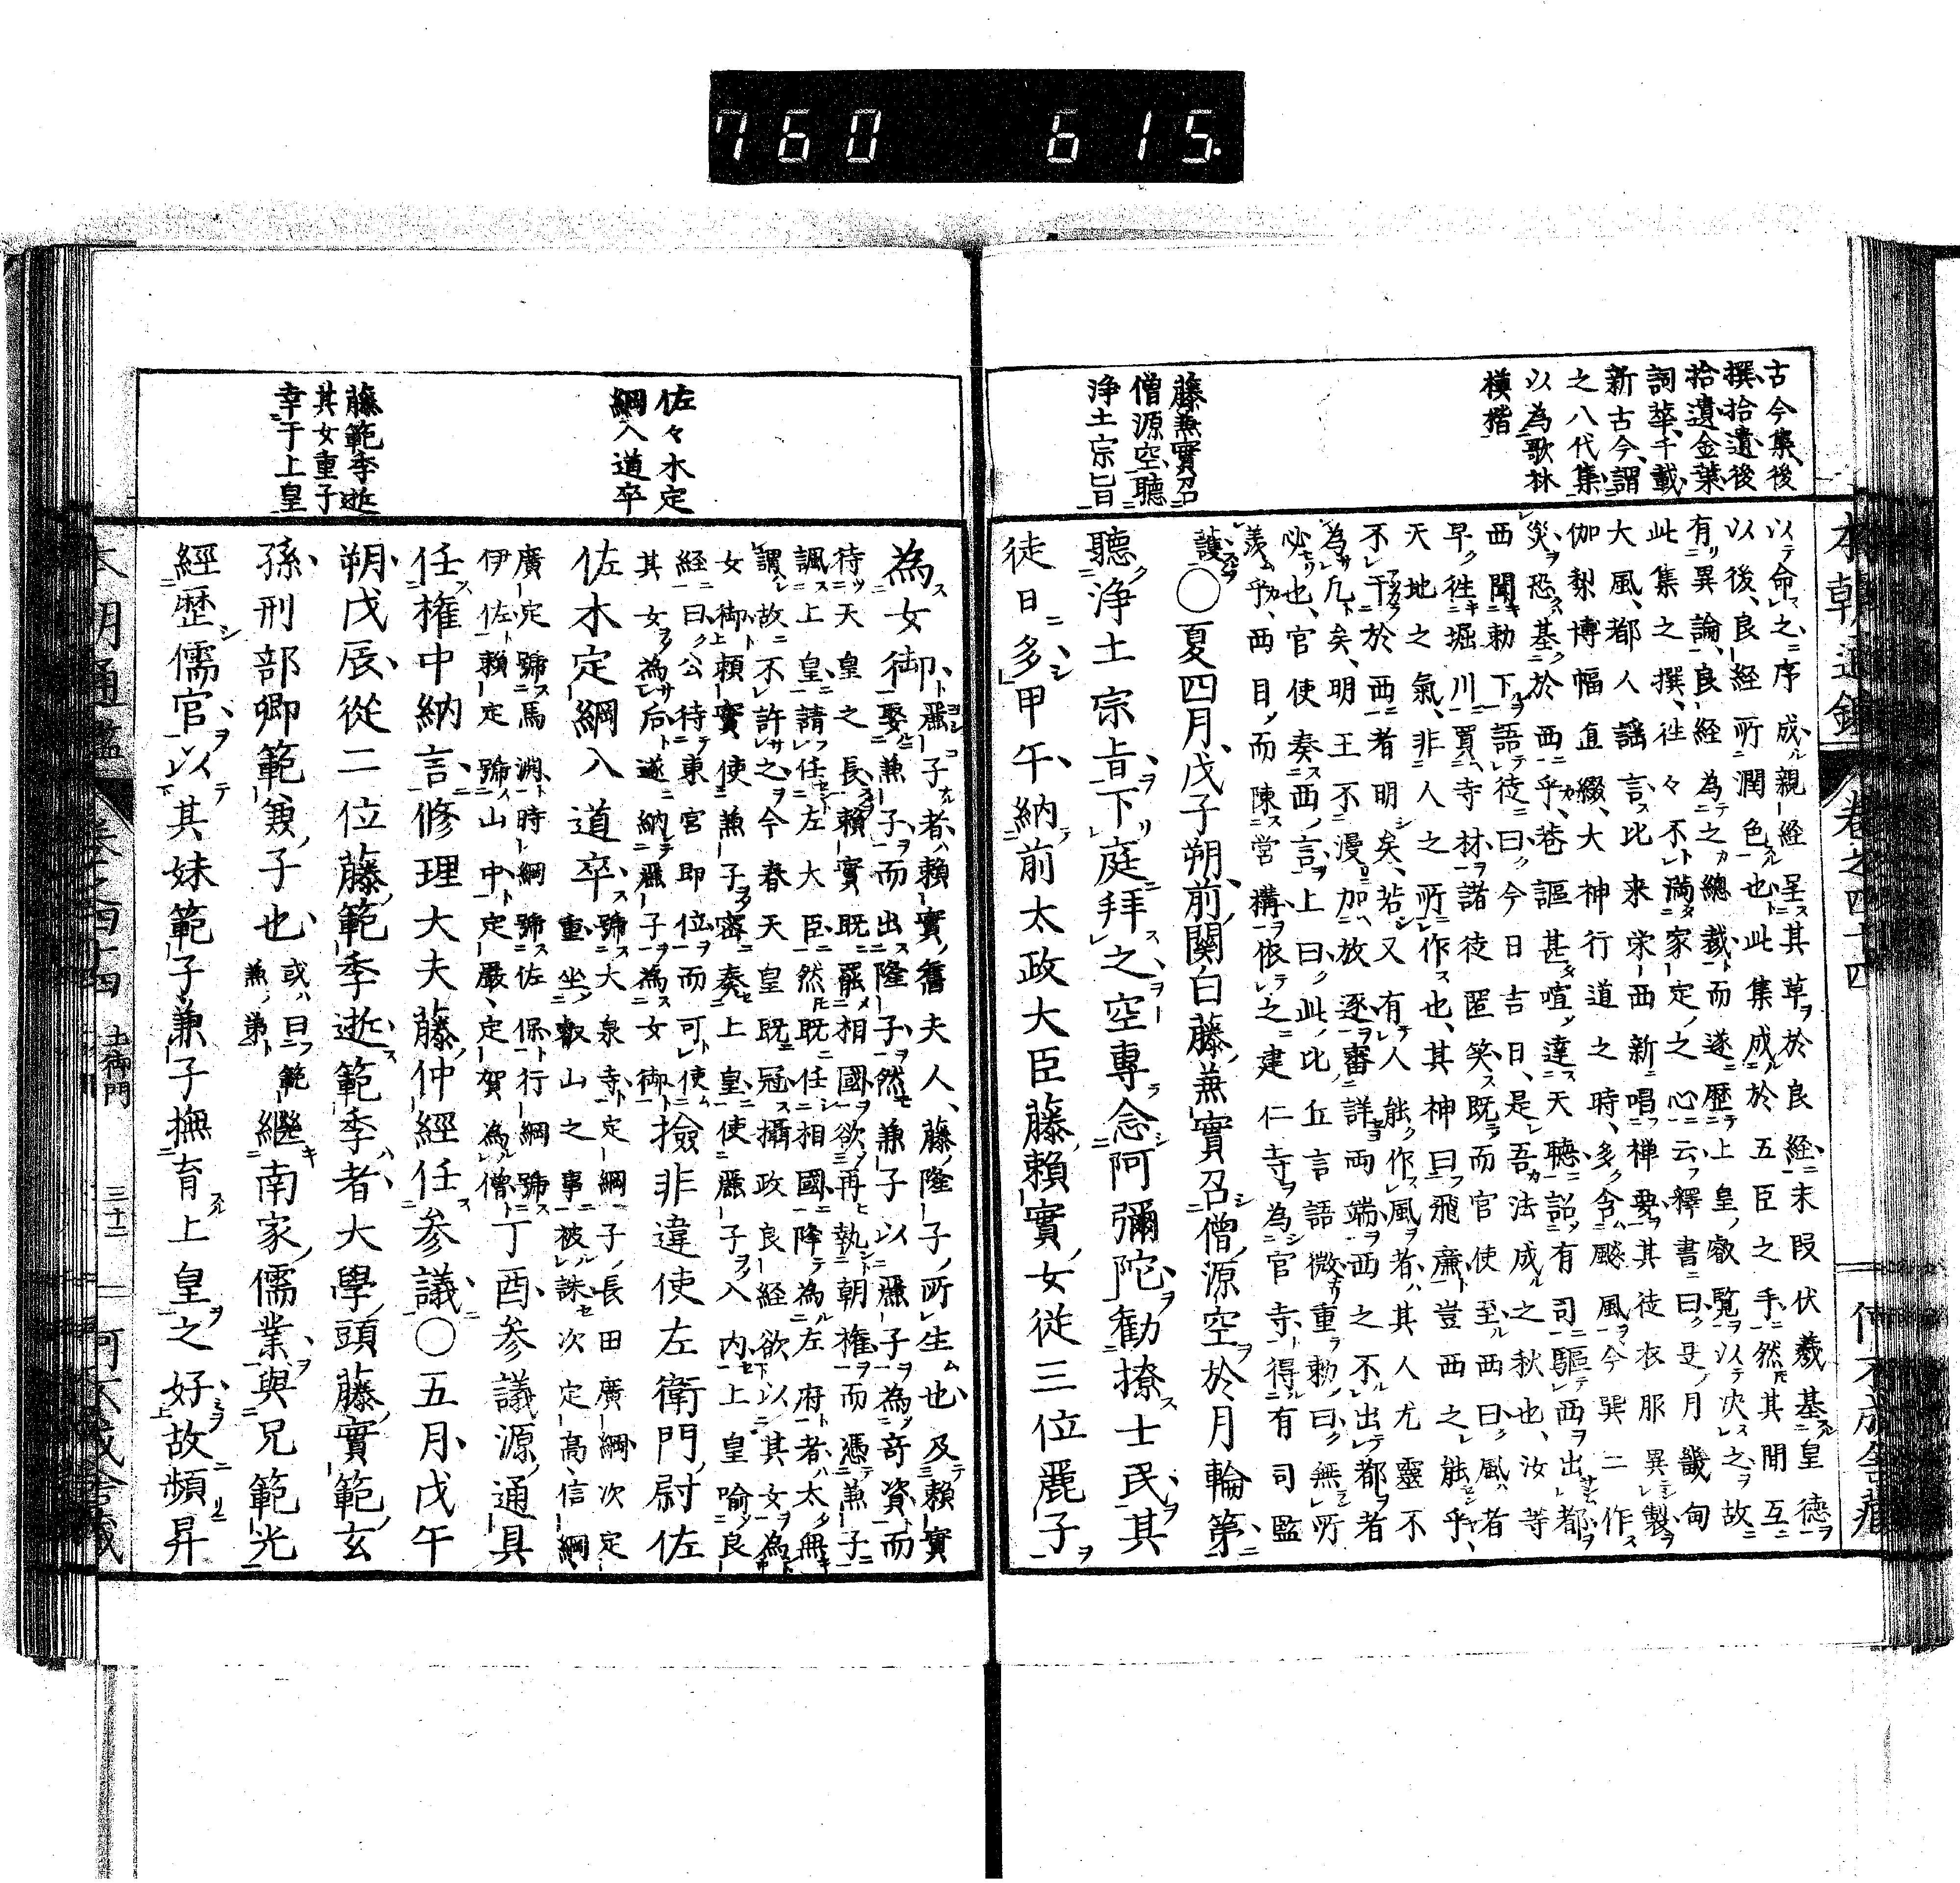 760 615.
古今集、後
撰、拾遺、後
拾遺、金葉、
詞華、千載、
新古今、謂
之八代集、
以為歌林
模楷
藤兼實召
僧源空、聽
浄土宗旨
本朝通鑑 卷之四十四
以命之、序成、親經呈其草於良經、末段伏羲基皇德
以後、良經所潤色也、此集成於五臣之手、然其間互
有異論、良經為之總裁、而遂歷上皇叡覧、以决之、故
此集之撰、徃々不満家定之心云、釋書曰、是月畿甸
大風、都人謡言、比来栄西新唱禅要、其徒衣服異製、
伽梨博幅直綴、大神行道之時、多含飈風、今巽二作
災、恐基於西乎、巷謳甚喧、達天聽、詔有司驅西出都、
西聞勅下、語徒曰、今日吉日、是吾法成之秋也、汝等
早徃堀川買寺材、諸徒匿笑、既而官使至、西曰、風者
天地之氣、非人之所作也、其神曰飛廉、豈西之能乎、
不干於西者明矣、若又有人能作風者、其人尤靈不
為凡矣、明王不漫加放逐、審詳両端、西之不出都者
必也、官使奏西言、上曰、此比丘言語微重、勅曰、無所
羨乎、西目而陳営構、依之建仁寺為官寺、得有司監
護、〇夏四月、戊子朔、前関白藤兼實召僧源空於月輪第、
聽浄土宗旨、下庭拜之、空專念阿彌陀、勸撩士民、其
徒日多、甲午、納前太政大臣藤頼實女從三位麗子
佐々木定
綱入道卒
藤範季逝
其女重子
幸于上皇
為女御、麗子者、頼實舊夫人、藤隆子所生也、及頼實而
娶兼子、而出隆子、然兼子以麗子為奇資、而
待天皇之長、頼實既罷相國、欲再執朝権、而憑兼子
諷上皇、請任左大臣、然既任相國、降為左府者太無
謂、故不許之、今春天皇既冠、攝政良經欲以其女為
女御、頼實使兼子密奏上皇、使麗子入内、上皇喻良
經曰、公待東宮即位、而可使
其女為后、遂納麗子為女御 撿非違使左衛門尉佐
佐木定綱入道卒、號大泉寺、定綱子、長田廣綱、次定
重、坐叡山之事被誅、次定高、信綱
廣定號馬淵、時綱號佐保、行綱號
伊佐、頼定號山中、定嚴、定賀為僧 丁酉、参議源通具
任権中納言、修理大夫藤仲經任参議、〇五月、戊午
朔、戊辰、從二位藤範季逝、範季者大學頭藤實範玄
孫、刑部卿範兼子也、或曰、範
兼弟 継南家儒業、與兄範光
經歴儒官、以其妹範子兼子撫育上皇之好、故頻昇
本朝通鑑 卷之四十四 土御門 三十二